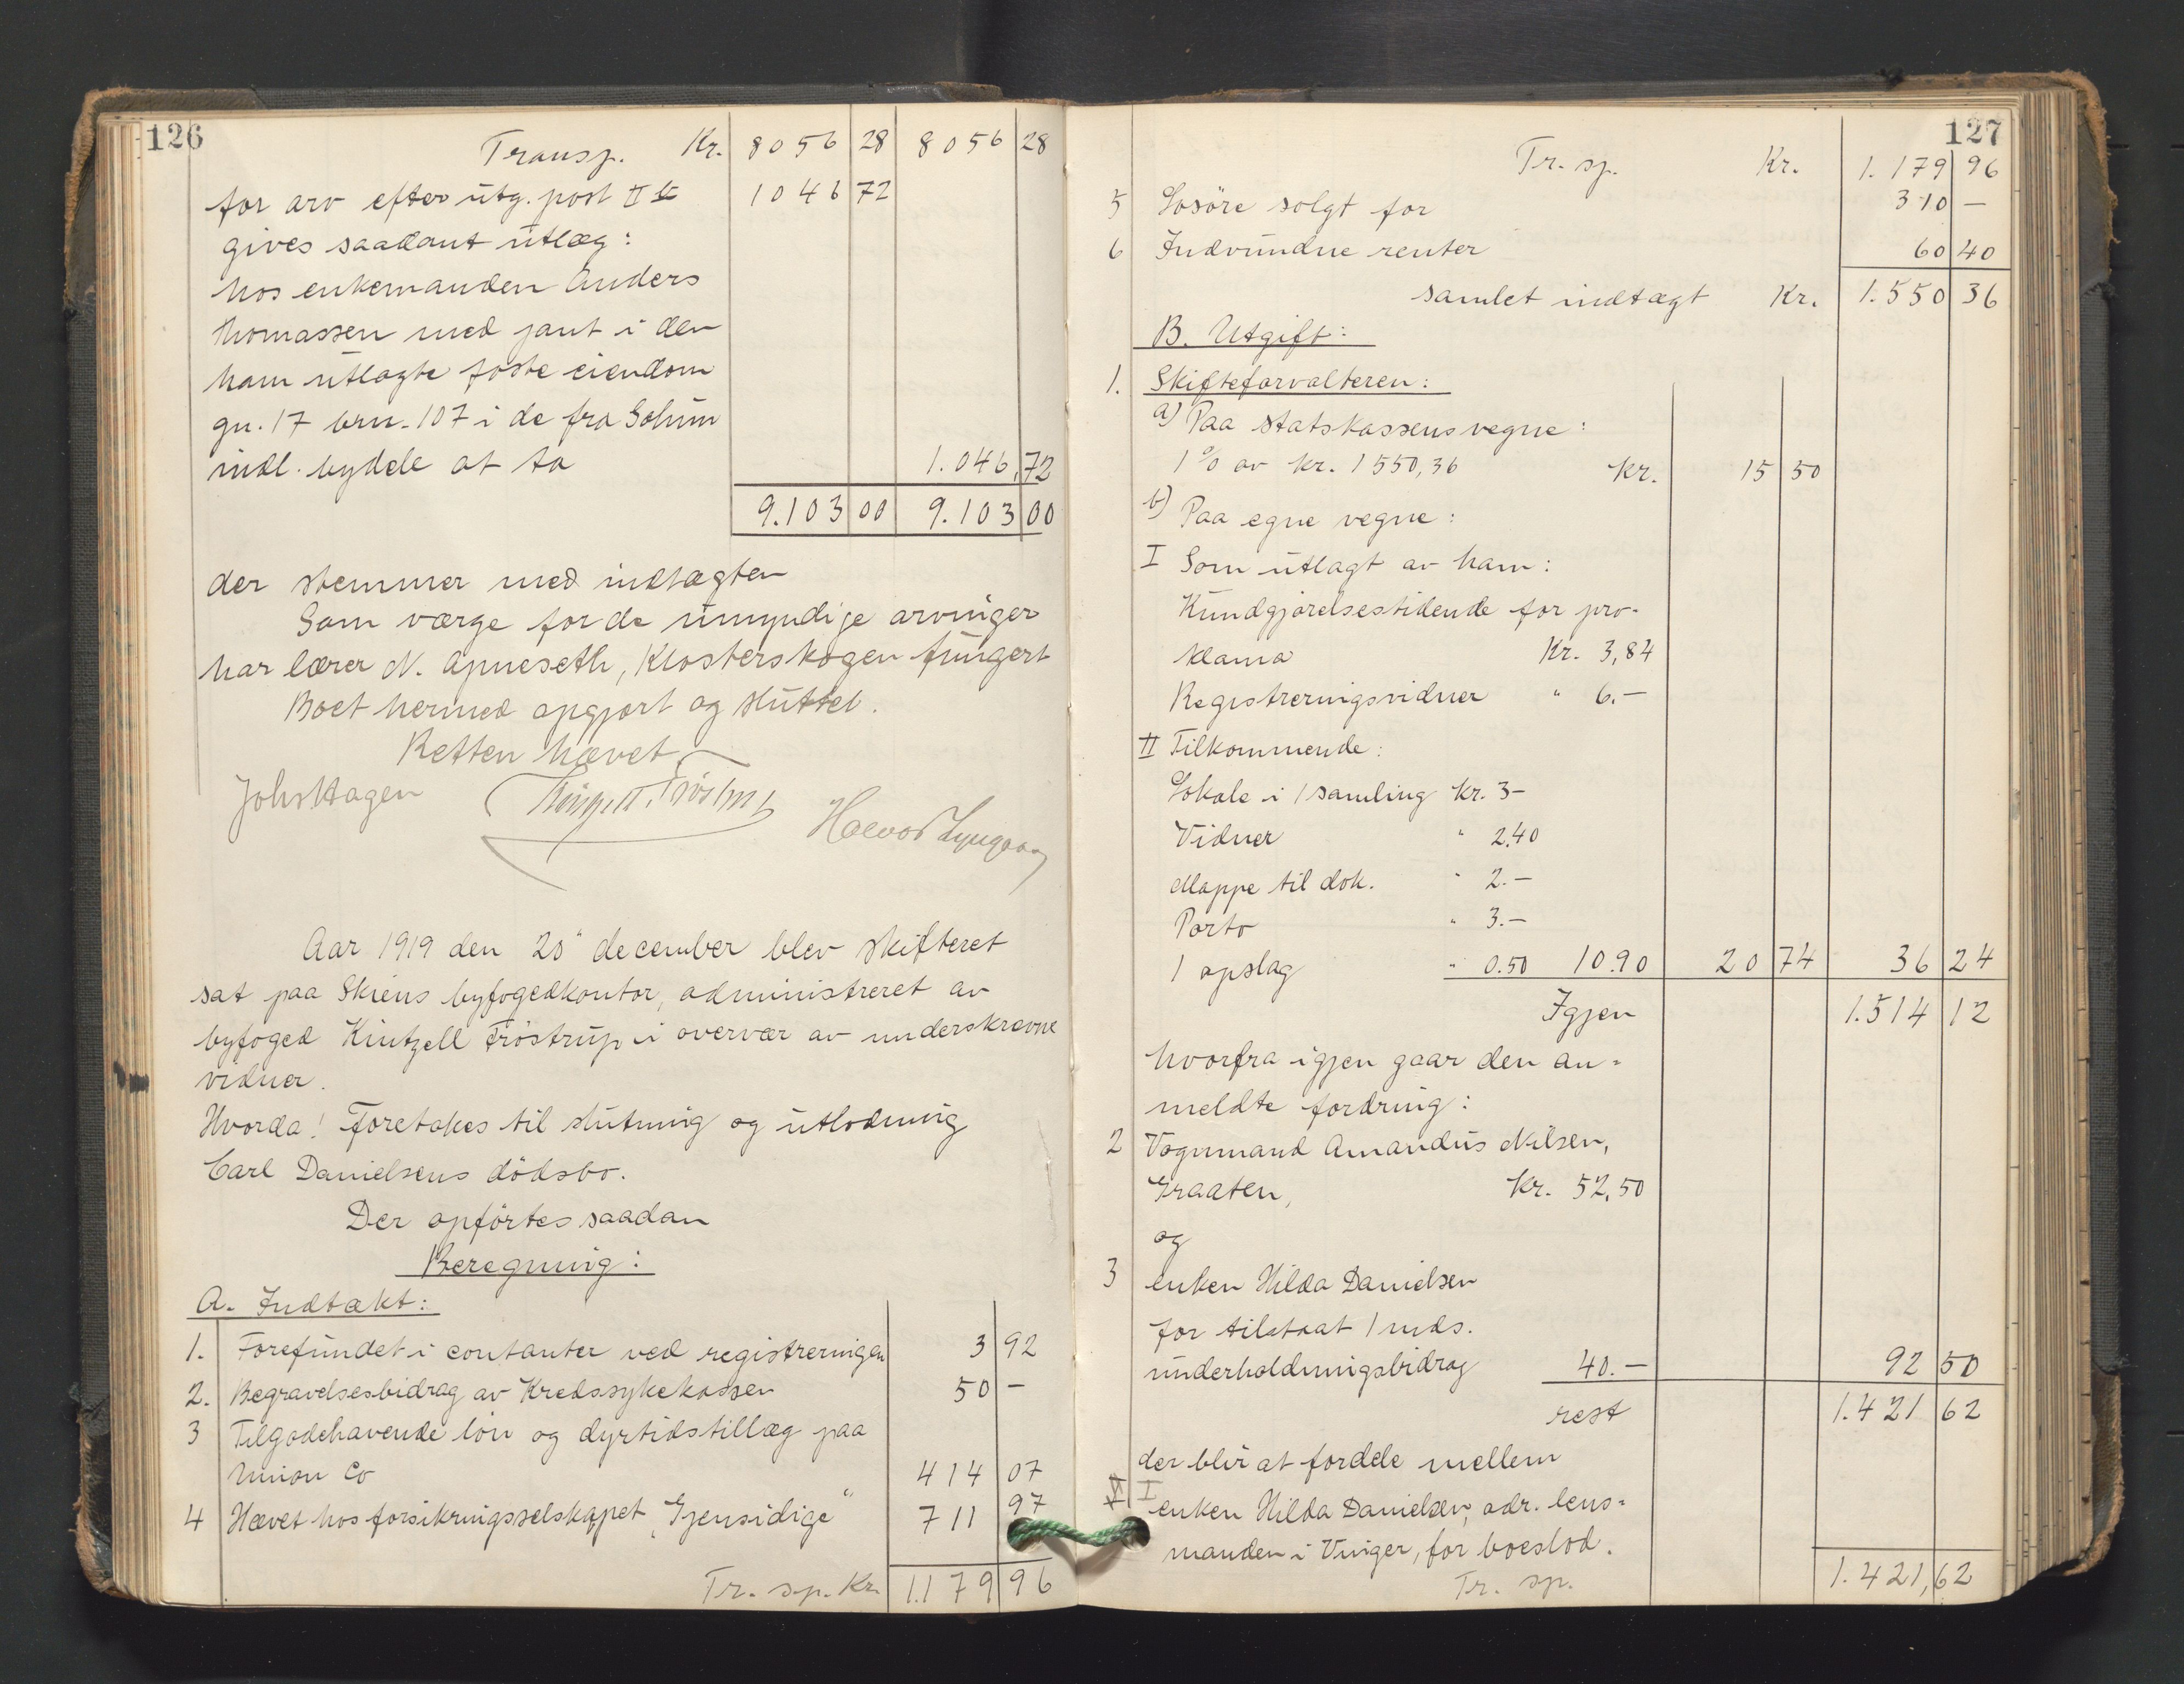 126
Transp. Kr. 8056 28 8056 28
for arv efter utg. post II 1046 72
gives saadant utlæg:
hos enkemanden Anders
Thomassen med pant i den
ham utlagte faste eiendom
gn. 17 brn. 107 i de fra Solum
indl. bydele at ta 1.046,72
9.103 00 9.103 00
der stemmer med indtægten
Som værge for de umyndige arvinger
har lærer N. Apneseth, Klosterskogen fungert
Boet hermed opgjort og sluttet.
Retten hævet.
Johs Hagen
Halvor Lyngaas
Aar 1919 den 20" december blev skifteret
sat paa Skiens byfogedkontor, administreret av
byfoged Kintzell Fröstrup i overvær av underskrevne
vidner.
Hvorda! Foretokes til slutning og utlodning
Carl Danielsens dödsbo.
Der opförtes saadan
Beregning:
A. Indtækt:
1. Forefundet i contanter ved registreringen 3 92
2. Begravelsesbidrag av Kredssykekassen 50 –
3 Tilgodehavende lön og dyrtidstillæg paa
Union Co 414 07
4 Hævet hos forsikringsselskapet „Gjensidige“ 711 97
Tr. sp. Kr. 1179 96
127
Tr. sp. Kr. 1.179 96
5 Lösöre solgt for 310 –
6 Indvundne renter 60 40
samlet indtægt Kr. 1.550 36
B. Utgift:
1. Skifteforvalteren:
a) Paa statskassens vegne:
1 % av kr. 1550,36 Kr. 15 50
b) Paa egne vegne:
I Som utlagt av ham:
Kundgjørelsestidende for pro-
klama Kr. 3,84
Registreringsvidner " 6.–
II Tilkommende:
Lokale i 1 samling Kr. 3–
Vidner " 2.40
Mappe til dok. " 2.–
Porto " 3.–
1 opslag " 0.50 10.90 20 74 36 24
Igjen 1.514 12
hvorfra igjen gaar den an=
meldte fordring:
2 Vognmand Amandus Nilsen,
Graaten, Kr. 52,50
og
3 enken Hilda Danielsen
for tilstaat 1 mds.
underholdningsbidrag 40.– 92 50
rest 1.421 62
der blir at fordele mellem
I enken Hilda Danielsen, adr. lens=
manden i Vinger, for boeslod.
Tr. sp. 1.421,62